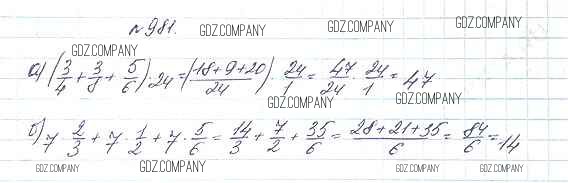 №981. GDZ.COMPANY GDZ.COMPANY
GDZ.COMPANY
а) (3/4 + 3/8 + 5/6) · 24 = ((18+9+20)/24) · 24/1 = 47/24 · 24/1 = 47
GDZ.COMPANY GDZ.COMPANY
б) 7 · 2/3 + 7 · 1/2 + 7 · 5/6 = 14/3 + 7/2 + 35/6 = (28+21+35)/6 = 84/6 = 14
GDZ.COMPANY GDZ.COMPANY GDZ.COMPANY GDZ.COMPANY